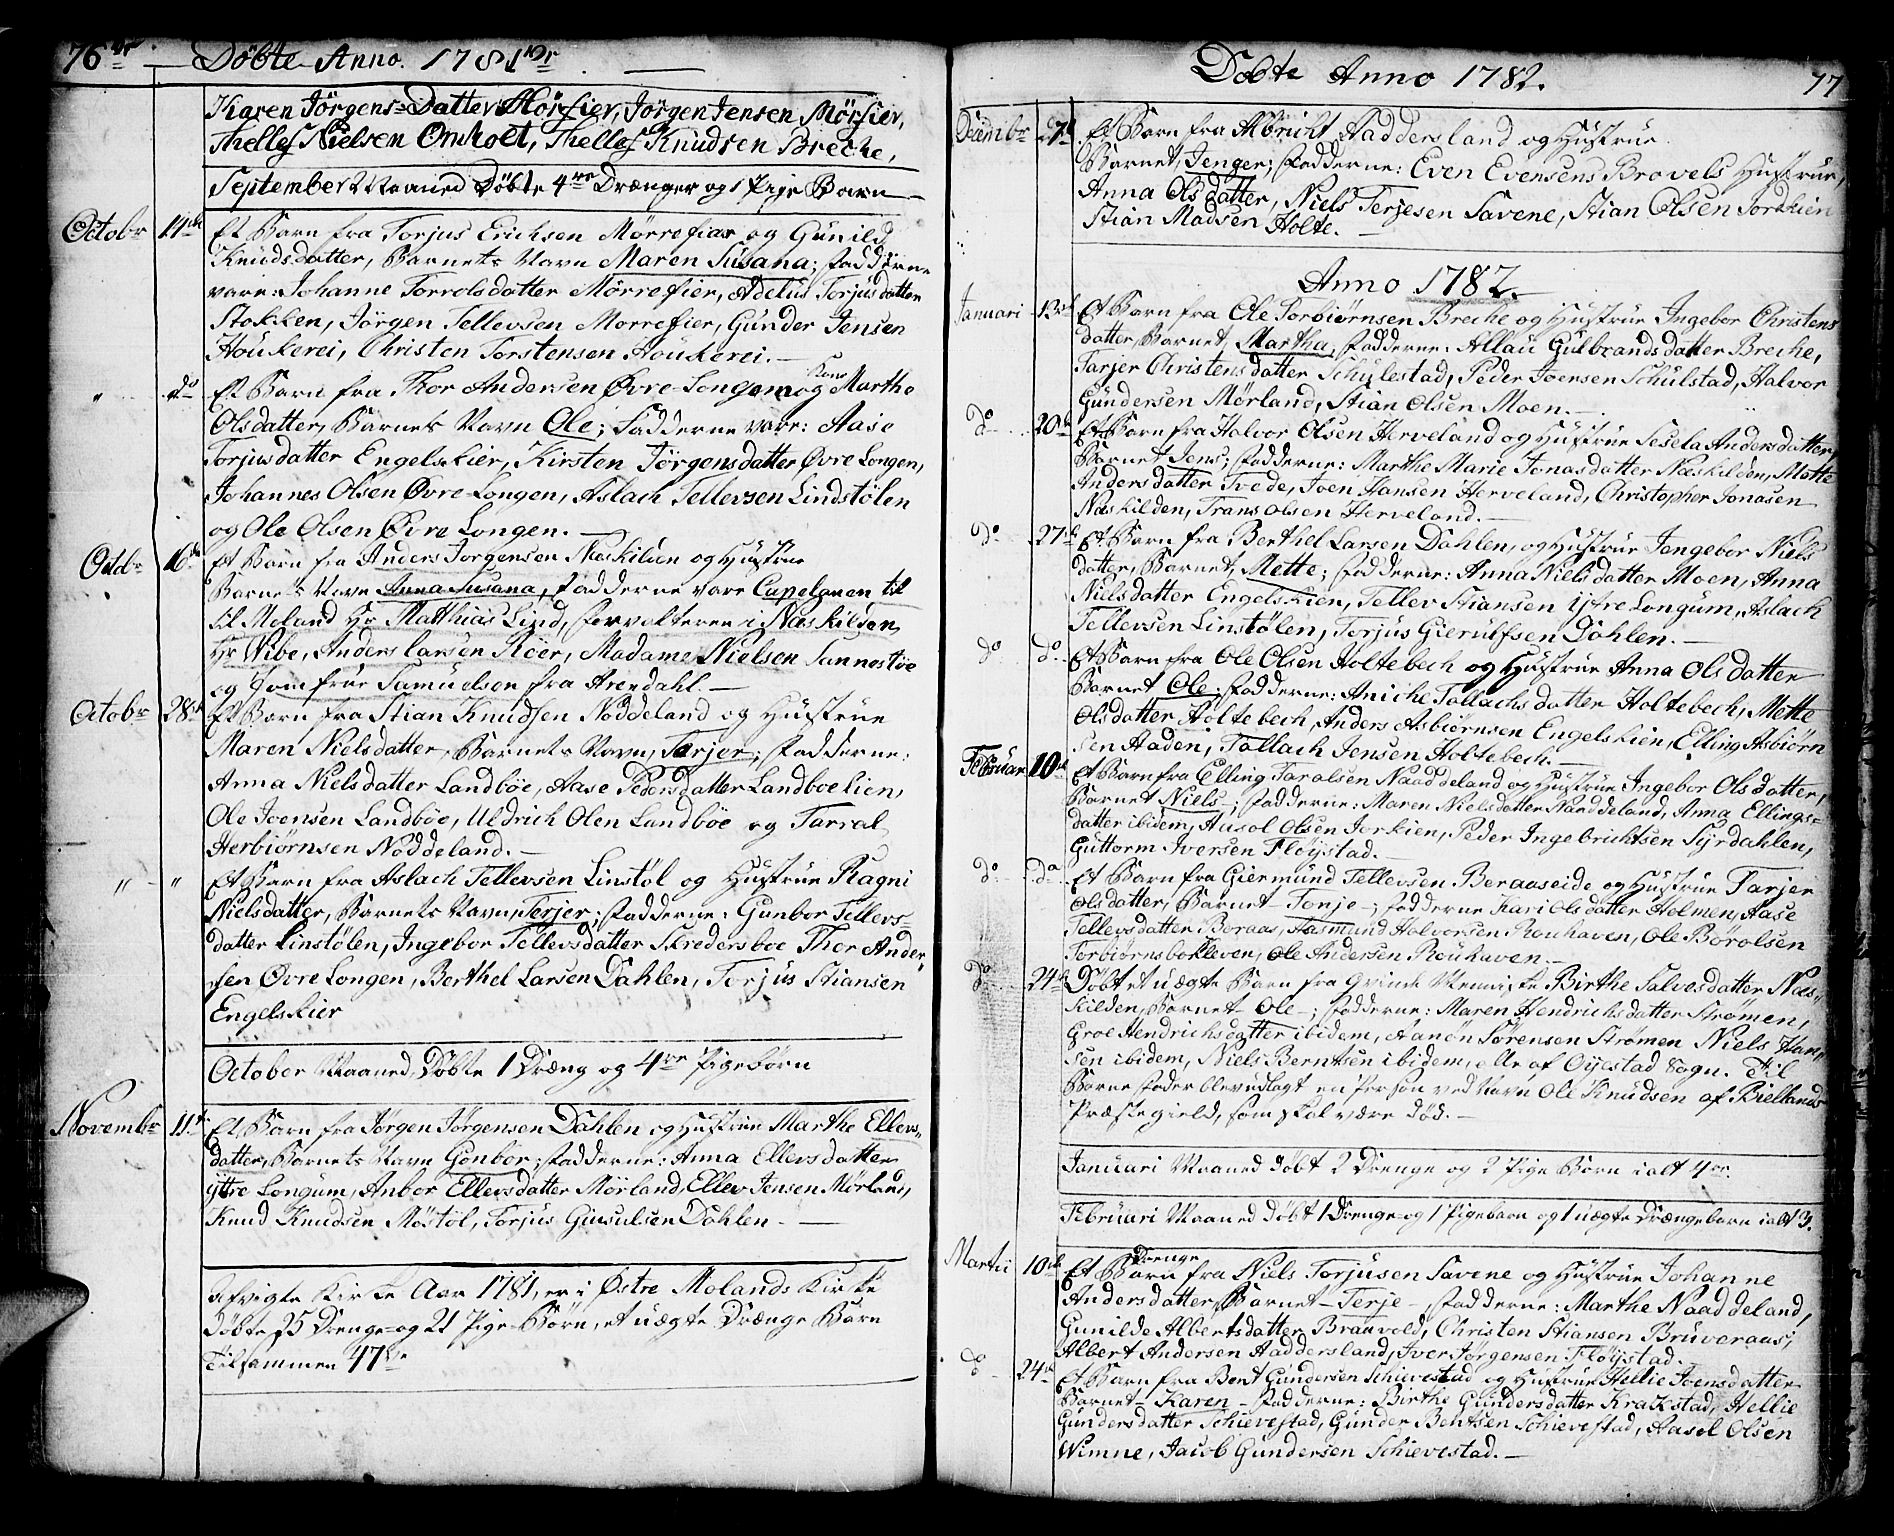 76de Döbte Anno. 1781de
Karen Jörgens-Datter Mörfier, Jörgen Jensen Mörfier,
Thellef Nielsen Omholt, Thellef Knudsen Breche,
September Maaned Döbte 4re Drænger og 1 Pige Barn
Octobr 14de Et Barn fra Torjus Erichsen Mörrefiær og Gunild
Knudsdatter, Barnets Navn Maren Susana; Faddérne
vare: Johanne Torrolsdatter Mörrefier, Adelus Torjusdatter
Stokken, Jörgen Tellevsen Morrefier, Gunder Jensen
Houkerei, Christen Torstensen Houkerei.
" do Et Barn fra Thor Andersen Övre Longom og Kone Marthe
Olsdatter, Barnets Navn Ole; Fadderne vare: Aase
Torjusdatter Engelskier, Kirsten Jörgensdatter Övre Longen,
Johannes Olsen Övre Longen, Aslach Tellevsen Lindstölen
og Ole Olsen Övre Longen.
Octbr 16de Et Barn fra Anders Jorgensen Næskilden og Hustrue
Barnets Navn Anna Susana, Fadderne vare Capelanen til
til Moland Hr Matthias Lind, forvalteren i Næskilden
Hr Wibe, Anders Larsen Röer, Madame Nielsen Sannestöe
og Jomfrue Samuelsen fra Arendahl.
Octobr 28de Et Barn fra Stian Knudsen Noddeland og Hustrue
Maren Nielsdatter, Barnets Navn, Tarjer; Fadderne:
Anna Nielsdatter Landböe, Aase Pedersdatter Landboelien,
Ole Joensen Landböe, Uldrich Olen Landböe og Tarral
Herbiörnsen Noddeland.
" " Et Barn fra Aslach Tellevsen Linstöl og Hustrue Ragni
Nielsdatter, Barnets Navn, Terjer; Fadderne: Gunbor Tellevs-
datter Linstölen, Ingebor Tellevsdatter Skredersboe Thor Ander-
sen Övre Longen, Berthel Larsen Dahlen, Torjus Stiansen
Engelskier
October Maaned, Döbte 1 Dræng og 4re Pigebörn
Novembr 11te Et Barn fra Jörgen Jörgensen Dahlen og Hustrue Marthe Ellevs-
datter, Barnets Navn Gonbor; Fadderne: Anna Ellevsdatter
Yttre Longum, Anbor Ellevsdatter Mörland, Ellev Jensen Mörland,
Knud Knudsen Möstöl, Torjus Giusulsen Dahlen.
Afvigte Kirke Aar 1781, er i Östre Molands Kirke
Döbte 25 Drenge og 21 Pige Börn, et uægte Drænge Barn
Tilsammen 47ve
Döbte Anno 1782. 77
Decembr 27de Et Barn fra Albricht Aaddersland og Hustrue.
Barnet, Jenger; Fadderne: Even Evensens Brovels Hustrue,
Anna Olsdatter, Niels Terjesen Savene, Stian Olsen Jordkien
Stian Madsen Holte.
Anno 1782.
Januari 13de Et Barn fra Ole Torbiörnsen Breche og Hustrue Ingebor Christens
datter, Barnet, Martha, Fadderne: Allau Gulbrandsdatter Breche,
Tarjer Christensdatter Schulestad, Peder Joensen Schulstad, Halvor
Gundersen Mörland, Stian Olsen Moen.
do 20de Et Barn fra Halvor Olsen Herveland og Hustrue Sesela Andersdatter,
Barnet Jens; Fadderne: Marthe Marie Jonasdatter Næskilden, Mette
Andersdatter Tvede, Iven Hansen Herveland, Christopher Jonasen
Næskilden, Trans Olsen Herveland.
do 27de Et Barn fra Berthel Larsen Dahlen, og Hustrue Jngebor Niels
datter, Barnet, Mette; Fadderne: Anna Nielsdatter Moen, Anna
Nielsdatter Engelskien, Tellev Stiansen Ytre Longum, Aslach
Tellevsen Linstölen, Torjus Gierulfsen Dahlen.
do do Et Barn fra Ole Olsen Holtebech og Hustrue Anna Olsdatter
Barnet Ole; Fadderne: Aniche Tallachsdatter Holtebech, Mette
Olsdatter Holtebech, Anders Asbiörnsen Engelskien, Elling Asbiörn
sen Haden, Tallach Jensen Holtebech.
Februar 10de Et Barn fra Elling Taralsen Naaddeland og Hustrue Ingebor Olsdatter,
Barnet Niels; Fadderne: Maren Nielsdatter Naaddeland, Anna Ellings-
datter ibidem, Ausol Olsen Jorkien, Peder Ingebrichtsen Syrdahlen,
Guttorm Iversen Flöystad.
do do Et Barn fra Giermund Tellevsen Beraaseide og Hustrue Tarjer
Olsdatter, Barnet - Tonje -; Fadderne Kari Olsdatter Holmen, Aase
Tellevsdatter Beraas, Aasmund Halvorsen Rouhaven, Ole Börolsen
Torbiörnsbokleven, Ole Andersen Rouhaven.
do 24de Döbt et uægte Barn fra Qvinde Menniske Birthe Salvesdatter Næs-
kilden, Barnet - Ole -; Fadderne: Maren Hendrichsdatter Strömen,
Groe Hendrichsdatter ibidem, Aanon Sörensen Strömen Niels Han-
sen ibidem, Niels Berntsen ibidem, Alle af Öyestad Sogn. Til
Barne Fader blev udlagt en Person ved Navn Ole Knudsen af Biellands
Præstegield, som skal være död.
Januari Maaned döbt 2 Drenge og 2 Pige Börn ialt 4re.
Februari Maaned döbt 1 Drenge og 1 Pigebarn og 1 uægte Drængebarn ialt 3.
Martii 10de Et Drenge Barn fra Niels Torjusen Savene og Hustrue Johanne
Andersdatter, Barnet - Terje -, Fadderne: Marthe Naaddeland,
Gunilde Albertsdatter Branvold, Christen Stiansen Bruveraas,
Albert Andersen Aaddersland, Iver Jörgensen Flöystad.
do 24de Et Barn fra Bent Gundersen Schievestad og Hustrue Hellie Joensdatter
Barnet - Karen - Fadderne: Birthe Gundersdatter Krakstad, Hellie
Gundersdatter Schievestad, Gunder Bentsen Schievestad, Aasol Olsen
Wimne, Jacob Gundersen Schievestad.